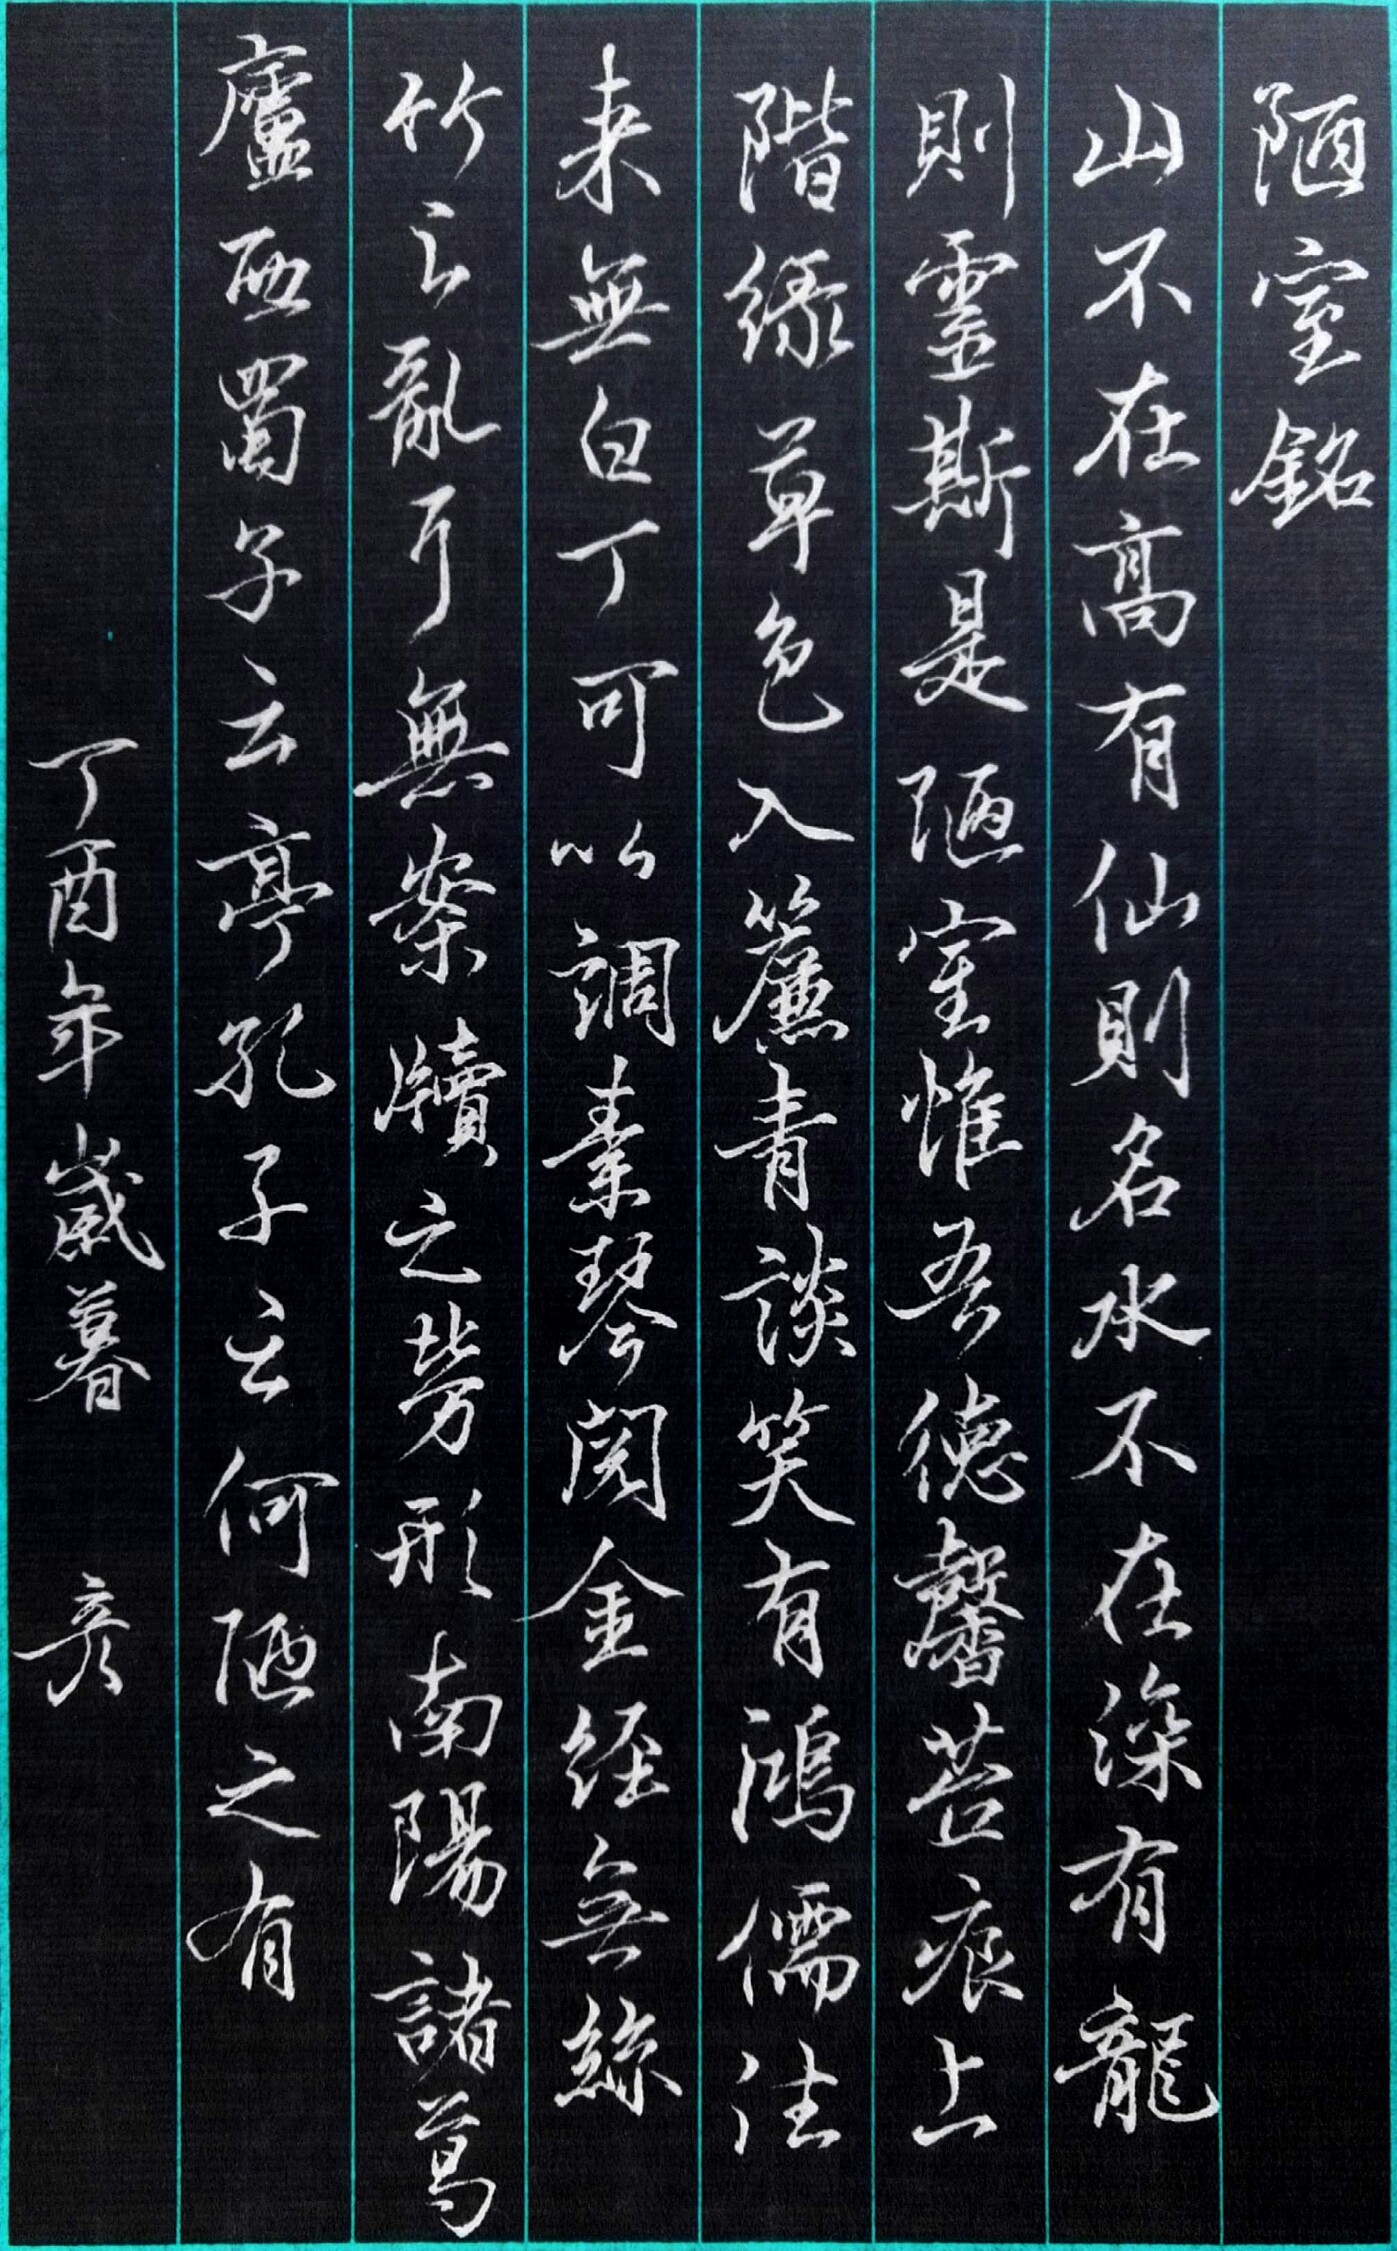 陋室銘
山不在高有仙則名水不在深有龍
則靈斯是陋室惟吾德馨苔痕上
階緑草色入簾青談笑有鴻儒往
来無白丁可以調素琴閲金経無絲
竹之亂耳無案牘之勞形南陽諸葛
廬西蜀子云亭孔子云何陋之有
丁酉年歲暮 彦